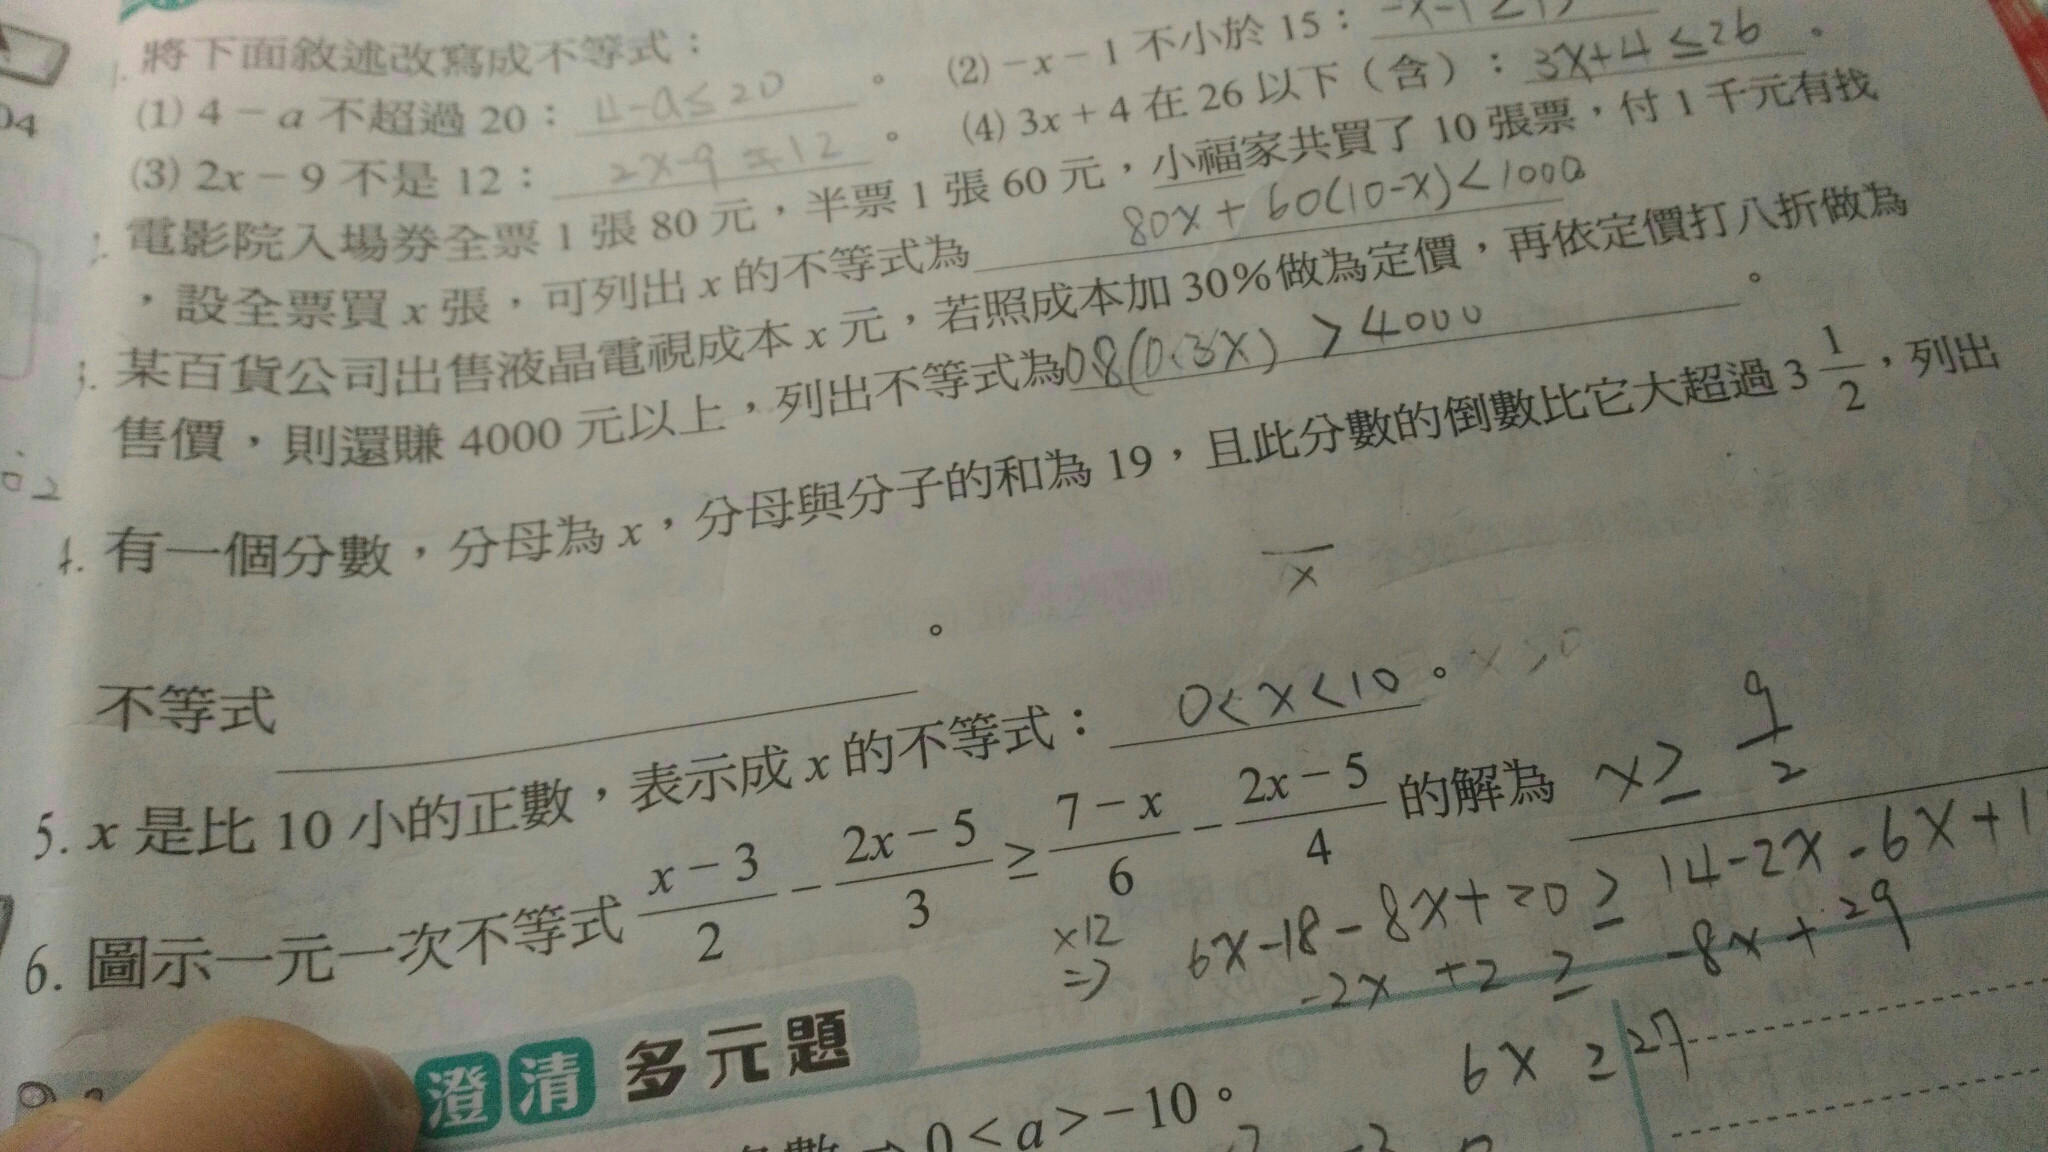 1. 將下面敘述改寫成不等式：
(1) 4 − a 不超過 20： 4-a≤20 。 (2) −x − 1 不小於 15： -x-1≥15
(3) 2x − 9 不是 12： 2x-9≠12 。 (4) 3x + 4 在 26 以下（含）： 3x+4≤26 。
電影院入場券全票 1 張 80 元，半票 1 張 60 元，小福家共買了 10 張票，付 1 千元有找
，設全票買 x 張，可列出 x 的不等式為 80x+60(10-x)<1000
3. 某百貨公司出售液晶電視成本 x 元，若照成本加 30%做為定價，再依定價打八折做為
售價，則還賺 4000 元以上，列出不等式為 0.8(0.3x) > 4000 。
4. 有一個分數，分母為 x，分母與分子的和為 19，且此分數的倒數比它大超過 3 1/2，列出
x
不等式 。
5. x 是比 10 小的正數，表示成 x 的不等式： 0<x<10 。 x>0
6. 圖示一元一次不等式 (x − 3)/2 − (2x − 5)/3 ≥ (7 − x)/6 − (2x − 5)/4 的解為 x≥ 9/2
×12 ⇒ 6x-18-8x+20≥14-2x-6x+1
-2x+2≥-8x+29
6x≥27
澄清多元題
0 < a > −10。